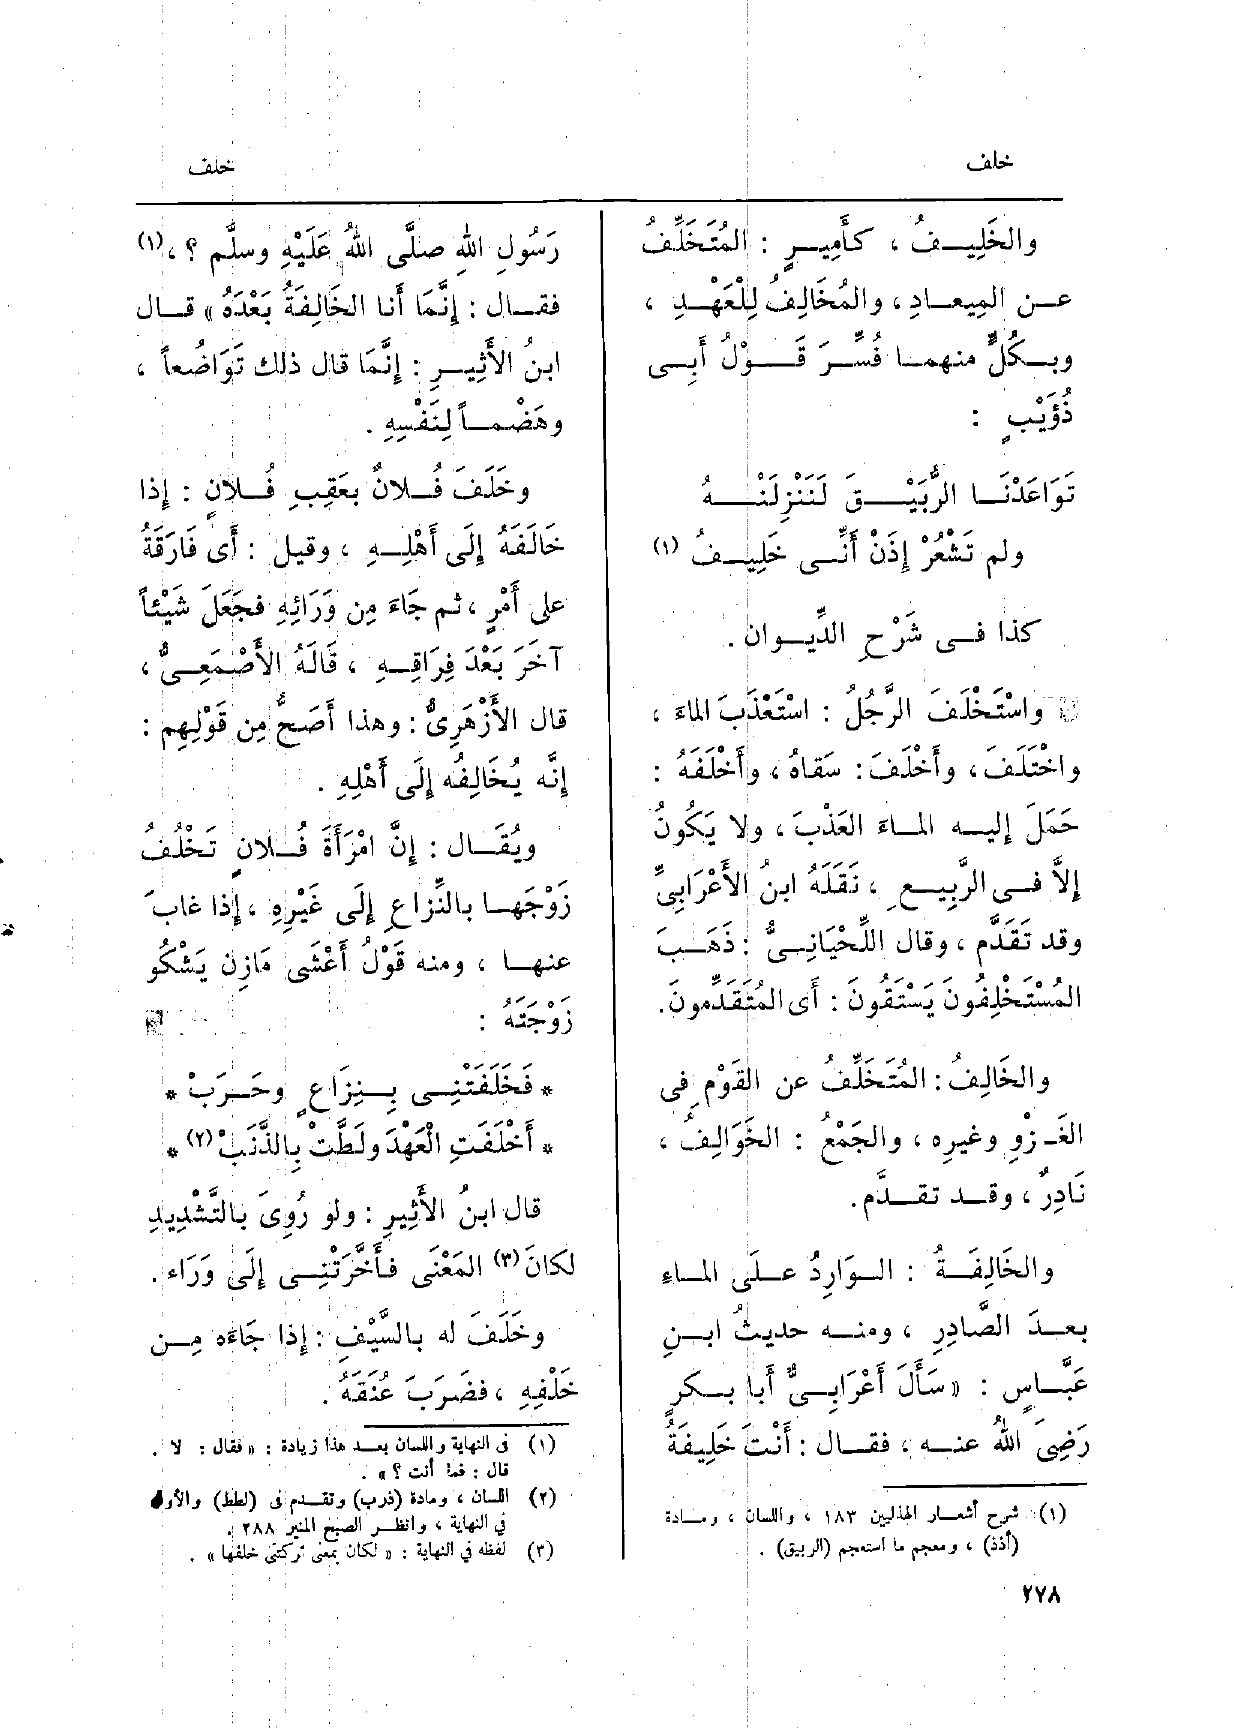 خلف
خلف
والخَلِيـفُ ، كأَمِيـرٍ : المُتَخَلِّفُ
عـن المِيعـادِ ، والمُخَالِفُ لِلْعَهْـدِ ،
وبـكُلٍّ منهمـا فُسِّـرَ قَـوْلُ أَبِـى
ذُؤَيْبٍ :
تَوَاعَدْنَـا الرُّبَيْـقَ لَنَنْزِلَنْـهُ
ولم تَشْعُرْ إِذَنْ أَنِّـى خَلِيـفُ (١)
كذا فـى شَرْحِ الدِّيـوان .
واسْتَخْلَفَ الرَّجُلُ : اسْتَعْذَبَ الماءَ ،
واخْتَلَفَ ، وأَخْلَفَ : سَقاهُ ، وأَخْلَفَهُ :
حَمَلَ إليـه المـاءَ العَذْبَ ، ولا يَكُونُ
إِلاَّ فـى الرَّبِيـعِ ، نَقَلَهُ ابنُ الأَعْرَابِيِّ
وقد تَقَدَّم ، وقال اللِّحْيَانِـىُّ : ذَهَـبَ
المُسْتَخْلِفُونَ يَسْتَقُونَ : أَى المُتَقَدِّمونَ.
والخَالِفُ : المُتَخَلِّفُ عن القَوْمِ فى
الغَـزْوِ وغيرِه ، والجَمْعُ : الخَوَالِفُ ،
نَادِرٌ ، وقـد تقـدَّم.
والخَالِفَـةُ : الـوَارِدُ عـلَى المـاء
بعـدَ الصَّادِرِ ، ومنـه حديثُ ابـنِ
عَبَّـاسٍ : « سَأَلَ أَعْرَابِـىٌّ أَبا بـكرٍ
رَضِىَ اللهُ عنـه ، فقـال : أَنْتَ خَلِيفَةُ
(١) شرح أشعـار الهذليين ١٨٣ ، واللسان ، ومـادة
(أذذ) ، ومعجم ما استعجم (الربيق) .
رَسُولِ اللهِ صلَّى اللهُ عَلَيْهِ وسلَّم ؟ ، (١)
فقـال : إِنَّمَا أَنا الخَالِفَةُ بَعْدَهُ » قـال
ابنُ الأَثِيـرِ : إِنَّمَا قال ذلك تَوَاضُعاً ،
وهَضْمـاً لِنَفْسِهِ .
وخَلَفَ فُـلانٌ بعَقِبِ فُـلانٍ : إذا
خَالَفَهُ إلَى أَهْلِـهِ ، وقيل : أَى فَارَقَهُ
على أَمْرٍ ، ثم جَاءَ مِن وَرَائِهِ فجَعَلَ شَيْئاً
آخَرَ بَعْدَ فِرَاقِـهِ ، قَالَهُ الأَصْمَعِـىُّ ،
قال الأَزْهَرِىُّ : وهذا أَصَحُّ مِن قَوْلِهِم :
إِنَّه يُخَالِفُه إِلَى أَهْلِهِ .
ويُقَـال : إِنَّ امْرَأَةَ فُـلانٍ تَخْلُفُ
زَوْجَهـا بالنِّزاعِ إِلَى غَيْرِهِ ، إذا غابَ
عنهـا ، ومنه قَوْلُ أَعْشَى مَازِنٍ يَشْكُو
زَوْجَتَهُ :
* فَخَلَفَتْنِـى بِـنِزَاعٍ وحَـرَبْ *
* أَخْلَفَتِ الْعَهْدَ ولَطَّتْ بِالذَّنَبْ (٢) *
قال ابنُ الأَثِيرِ : ولو رُوِىَ بالتَّشْدِيدِ
لكَانَ (٣) المَعْنَى فـأَخَّرَتْنِـى إِلَى وَرَاء .
وخَلَفَ له بالسَّيْفِ : إذا جَاءَه مِـن
خَلْفِهِ ، فضَرَبَ عُنُقَهُ .
(١) فى النهاية واللسان بعـد هذا زيادة : « فقال : لا .
قال : فما أنت ؟ » .
(٢) اللسان ، ومادة (ذرب) وتقـدم فى (لطط) والأول
فى النهاية ، وانظـر الصبح المنير ٢٨٨ .
(٣) لفظه فى النهاية : « لكان بمعنى تركتنى خلفها » .
٢٧٨